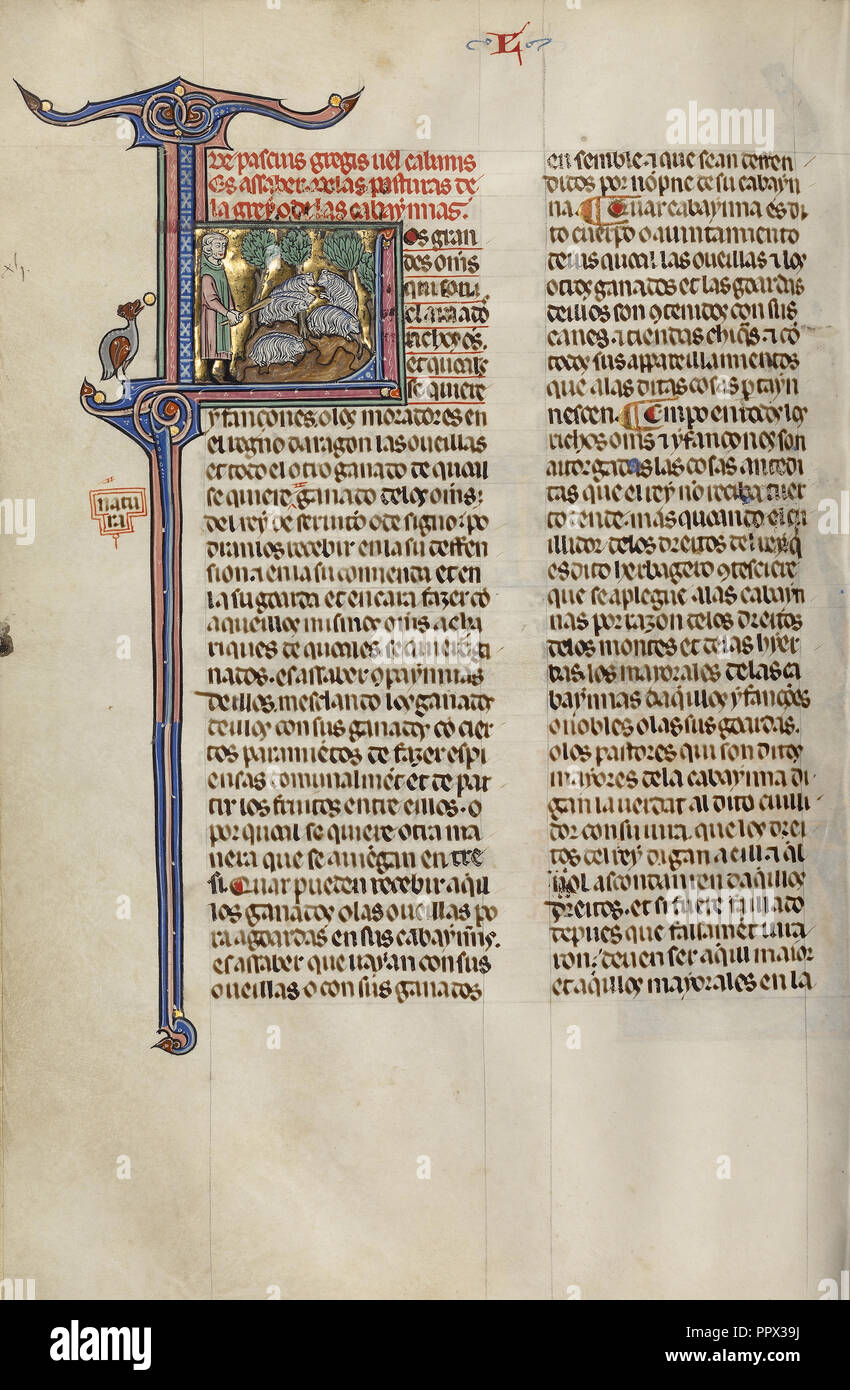 L
De pascuis gregis uel cabannis
Es assaber de las pasturas de
la grey o de las cabaynnas.
os gran
des oms
qui son
clamado
richos
et quale
se quiere
yfançones o los moradores en
el regno daragon las oueillas
et todo el otro ganado de quall
se quiere ganado de los oms
del rey de seruicio o de signo po
dran los recebir en la su deffen
sion ⁊ en la su comienda et en
la su goarda et encara fazer co
aqueillos mismos oms
riques de quales se quiere
nados. es assaber conpaynnias
deillos mesclando los ganados
deillos con sus ganados co cier
tos paramientos de fazer espi
ensas comunalment et de par
tir los fruitos entre eillos. o
por quall se quiere otra ma
nera que se auiengan entre
si. Quar pueden recebir aquil
los ganados o las oueillas po
ra agoardas en sus cabaynnas.
es assaber que uayan con sus
oueillas o con sus ganados
en semble ⁊ que sean deffen
didos por nompne de su cabayn
na. Quar cabaynna es di
to cuerpo o auntamiento
en el quall las oueillas ⁊ los
otros ganados et las goardas
deillos son contenidos con sus
canes ⁊ tiendas chicas ⁊ co
todos sus appareillamientos
que a las ditas cosas pertayn
nescen. Empero en todos los
richos oms ⁊ yfançones son
atorgadas las cosas antedi
tas que el rey no reciba tuer
to ende. mas quando el cu
illidor de los dreitos del rey q
es dito herbagero contesciere
que se aplegue a las cabayn
nas por razon de los dreitos
de los montes et de las hyer
bas. los mayorales de las ca
baynnas daquillos yfançones
o nobles o las sus goardas.
o los pastores qui son ditos
mayores de la cabaynna di
gan la uerdat al dito cuilli
dor con su iura. que los drei
tos del rey digan a eill ⁊ al
nol ascondan en daquillos
dreitos. et si fuere fuillado
depues que fallament iura
ron. deuen ser aquill maior
et aquillos mayorales en la
xlj.
natu
ra
alamy
PPX39J
www.alamy.com